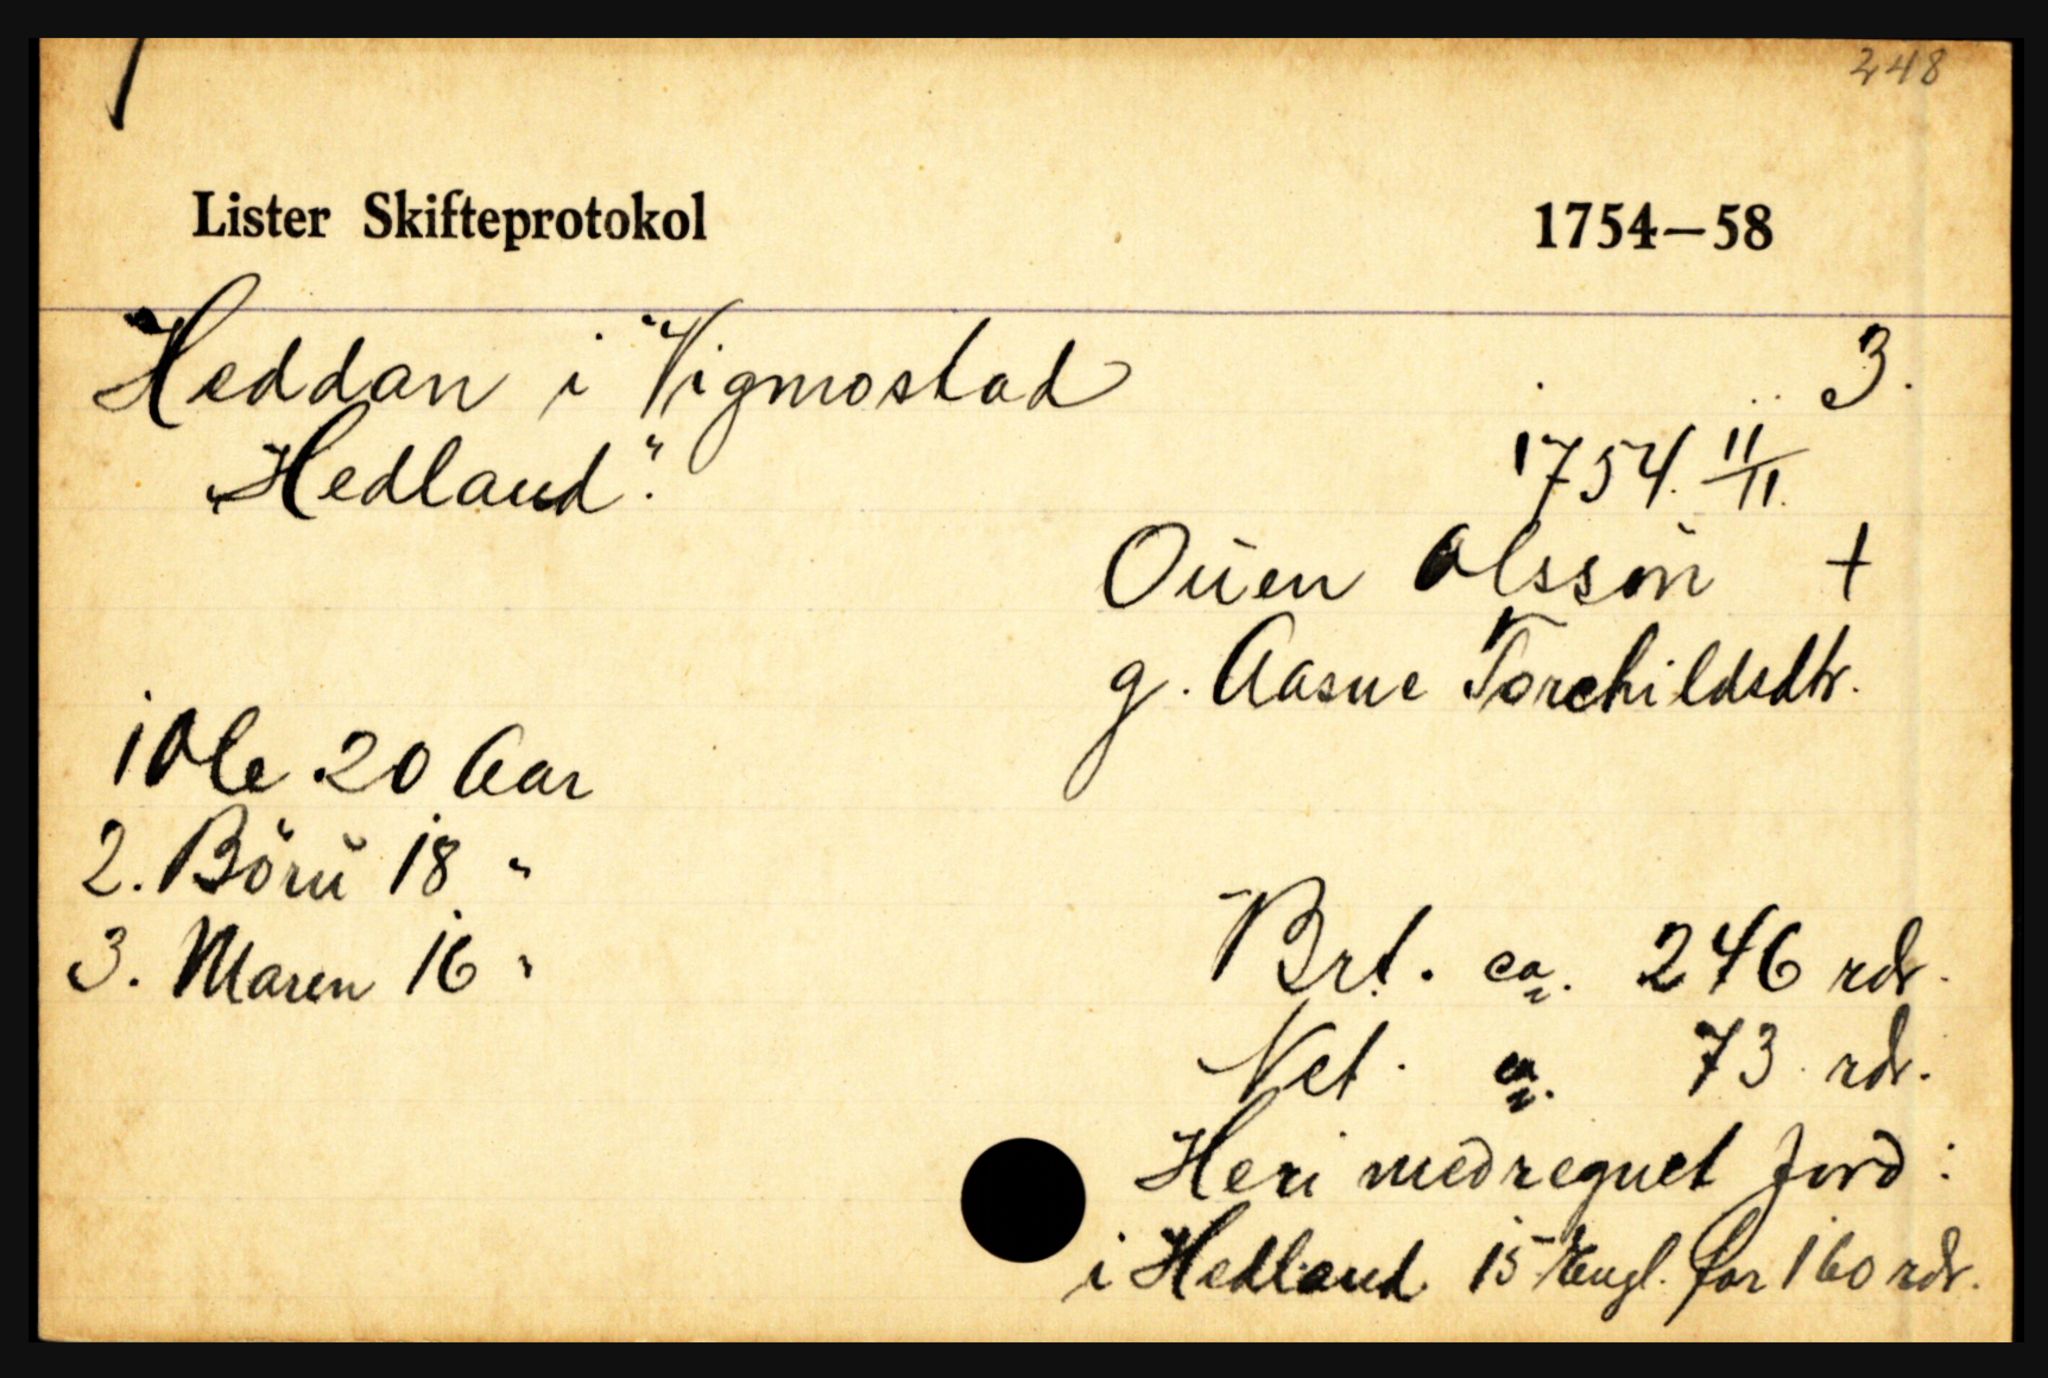 248
Lister Skifteprotokol 1754—58
Heddan i Vigmostad 3.
"Hedland".
1754. 11/11.
Ouen Olsson +
g. Aasne Torchildsdtr.
1 Ole 20 Aar
2. Böru 18 "
3. Maren 16 "
Brt. ca. 246 rdr.
Net. ca. 73 rdr.
Heri medregnet Jord:
i Hedland 15 Engl. for 160 rdr.